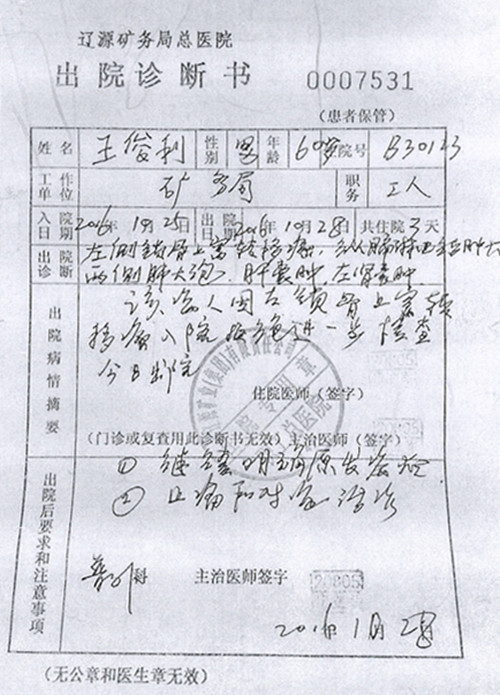 辽源矿务局总医院
出院诊断书 0007531
(患者保管)
姓名 王俊利 性别 男 年龄 60岁 院号 B30123
工作单位 矿务局 职务 工人
入院日期 2016年10月25日 出院日期 2016年10月28日 共住院3天
出院诊断 左侧锁骨上窝转移癌,纵膈淋巴结肿大
两侧肺大疱,肝囊肿,左肾囊肿
出院病情摘要 该病人因左锁骨上窝转
移癌入院 进一步检查
今日出院
住院医师(签字)
(门诊或复查用此诊断书无效)主治医师(签字)
出院后要求和注意事项 ① 继续明确原发
② 止痛和对症治疗
普外科 主治医师签字
120805
(无公章和医生章无效)